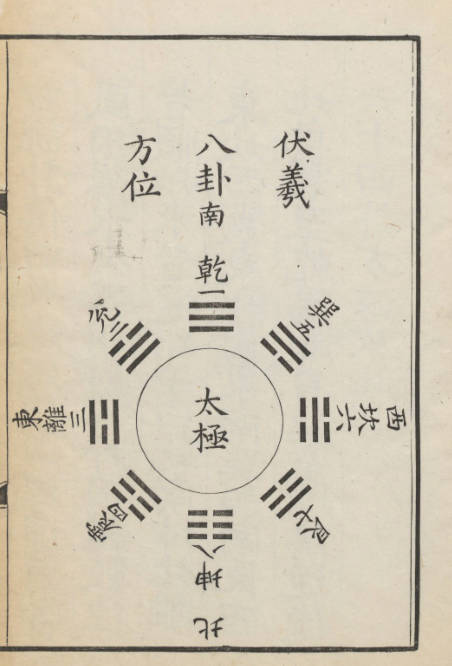 伏羲
八卦
方位
南
乾一
兌二
離三
東
震四
巽五
坎六
西
艮七
坤八
北
太極